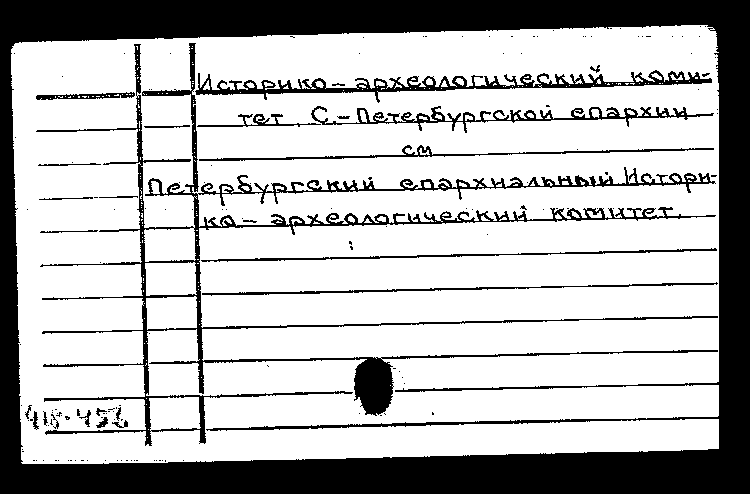 Историко-археологический коми-
тет С.-Петербургской епархии
см
Петербургский епархиальный Истори-
ко-археологический комитет.